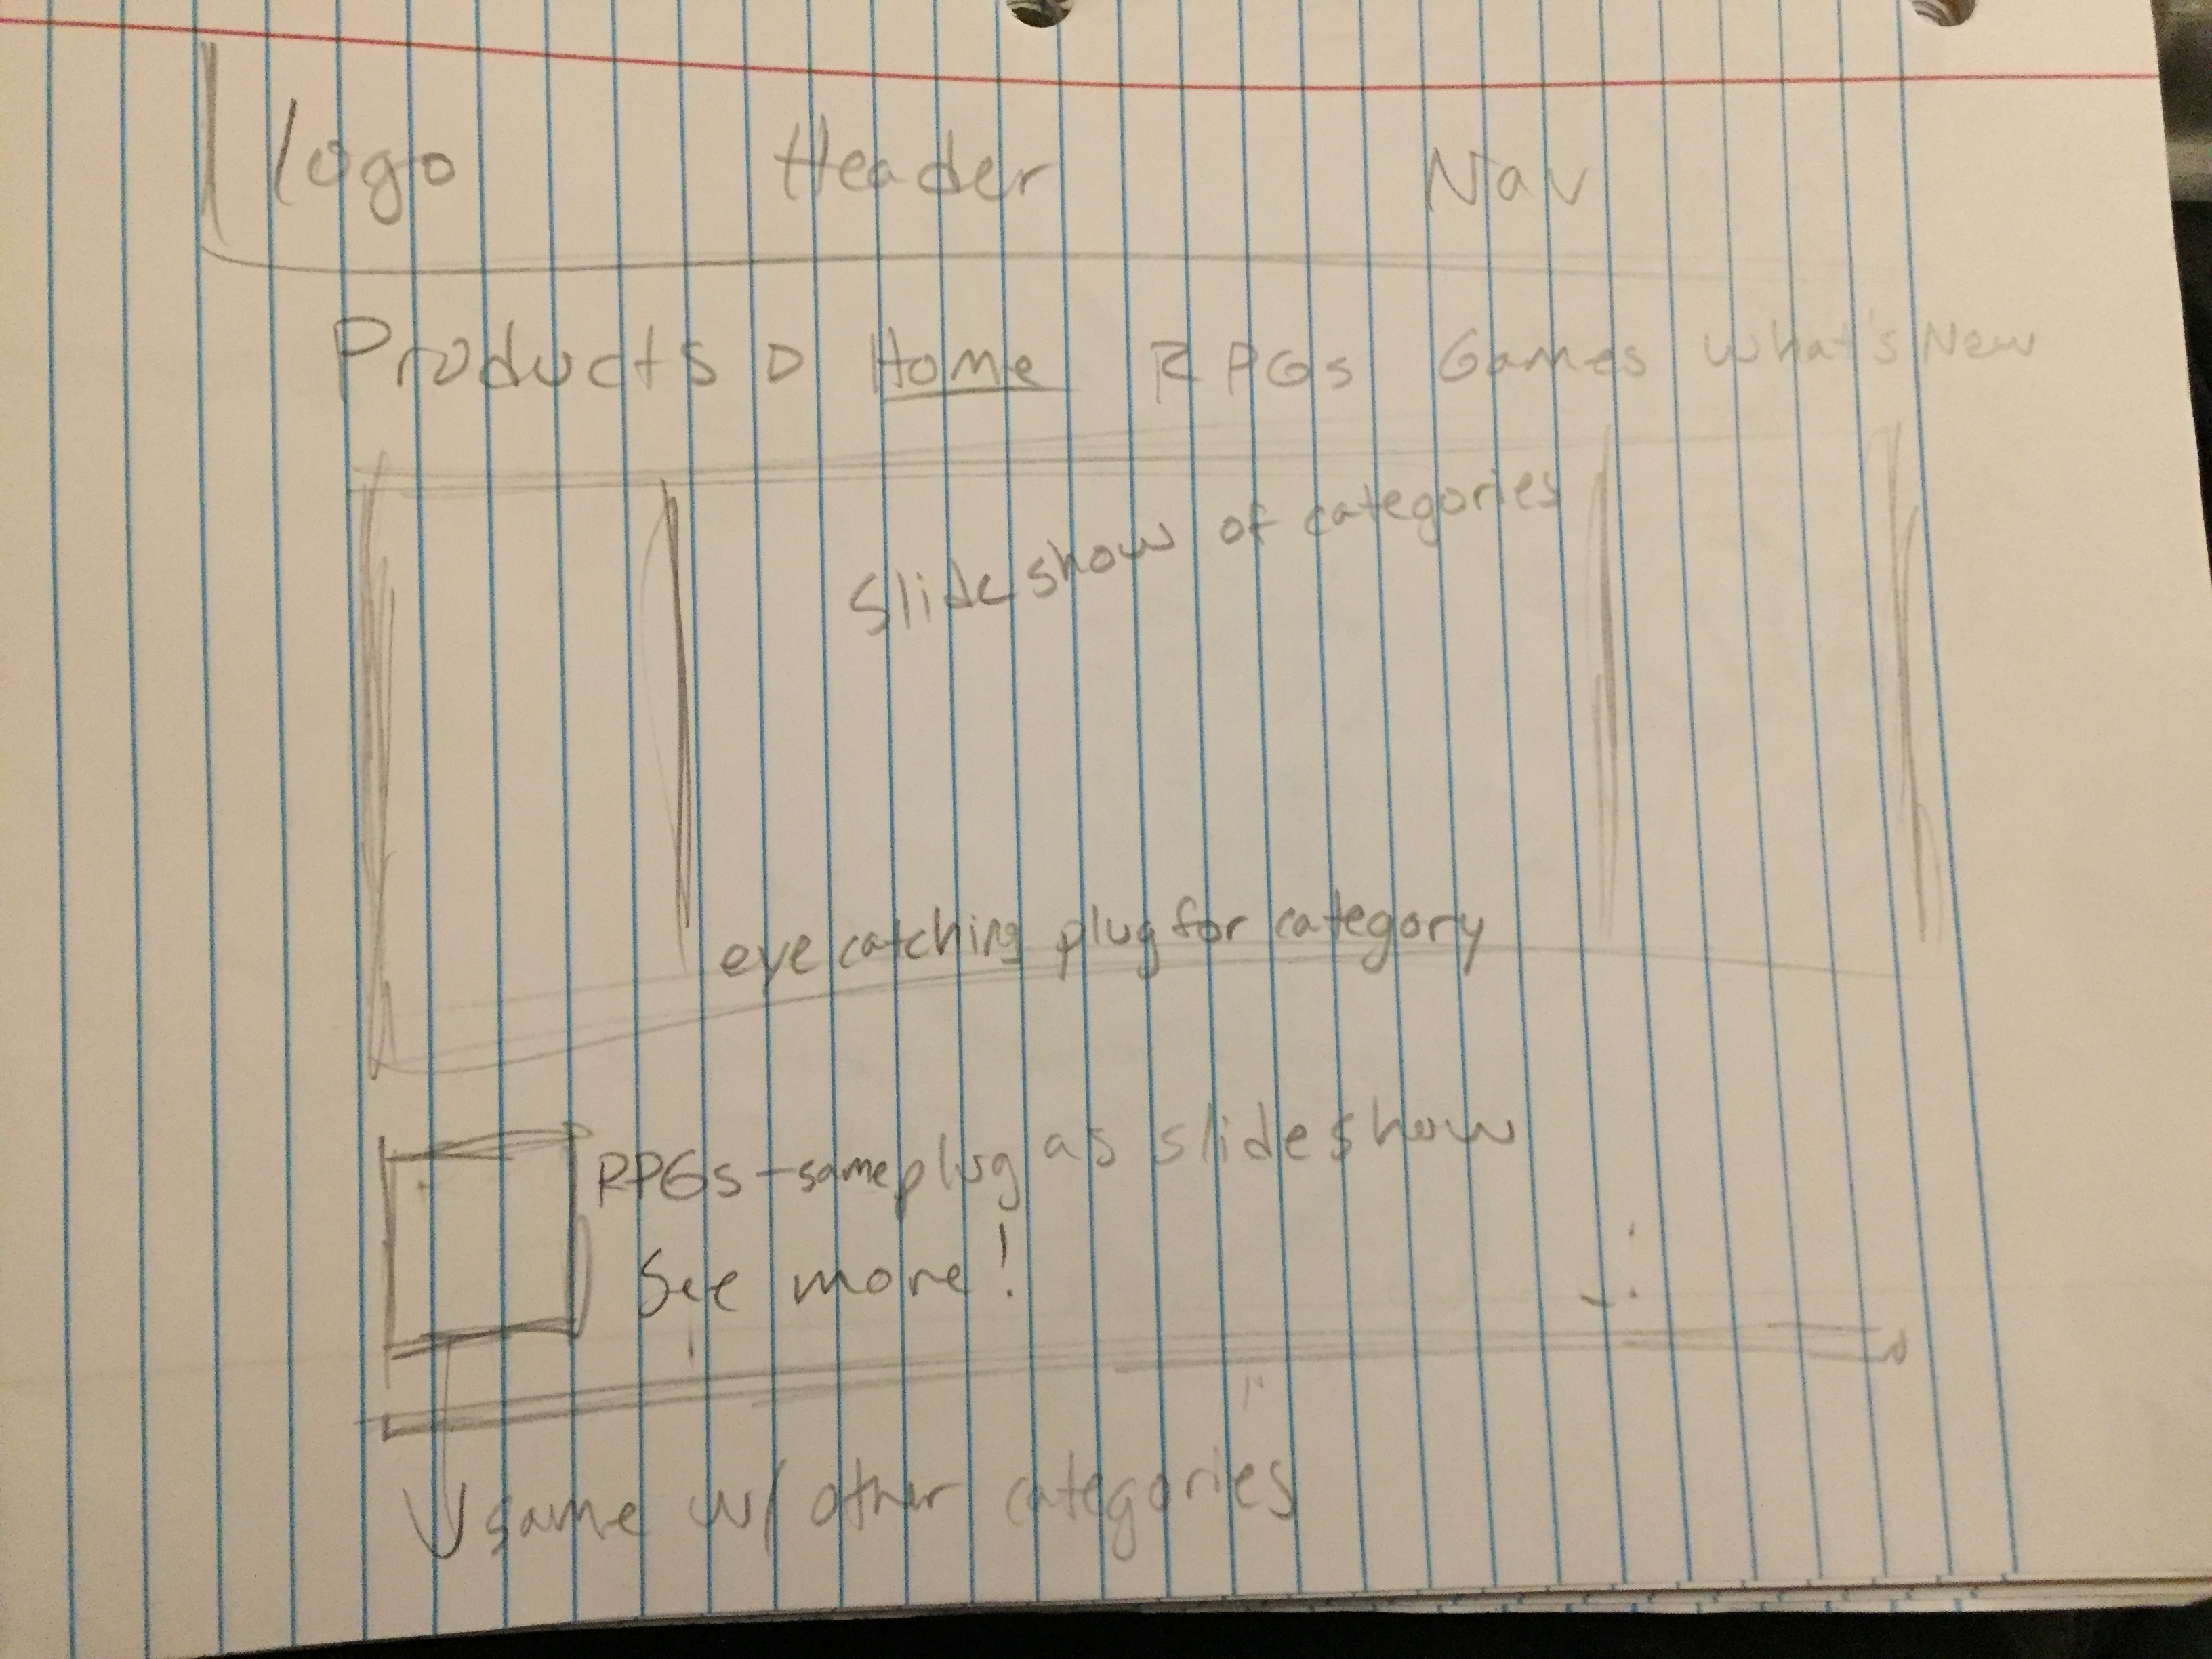 logo Header Nav
Products ▷ Home RPGs Games What's New
Slideshow of categories
eye catching plug for category
RPGs - same plug as slideshow
See more!
same w/ other categories